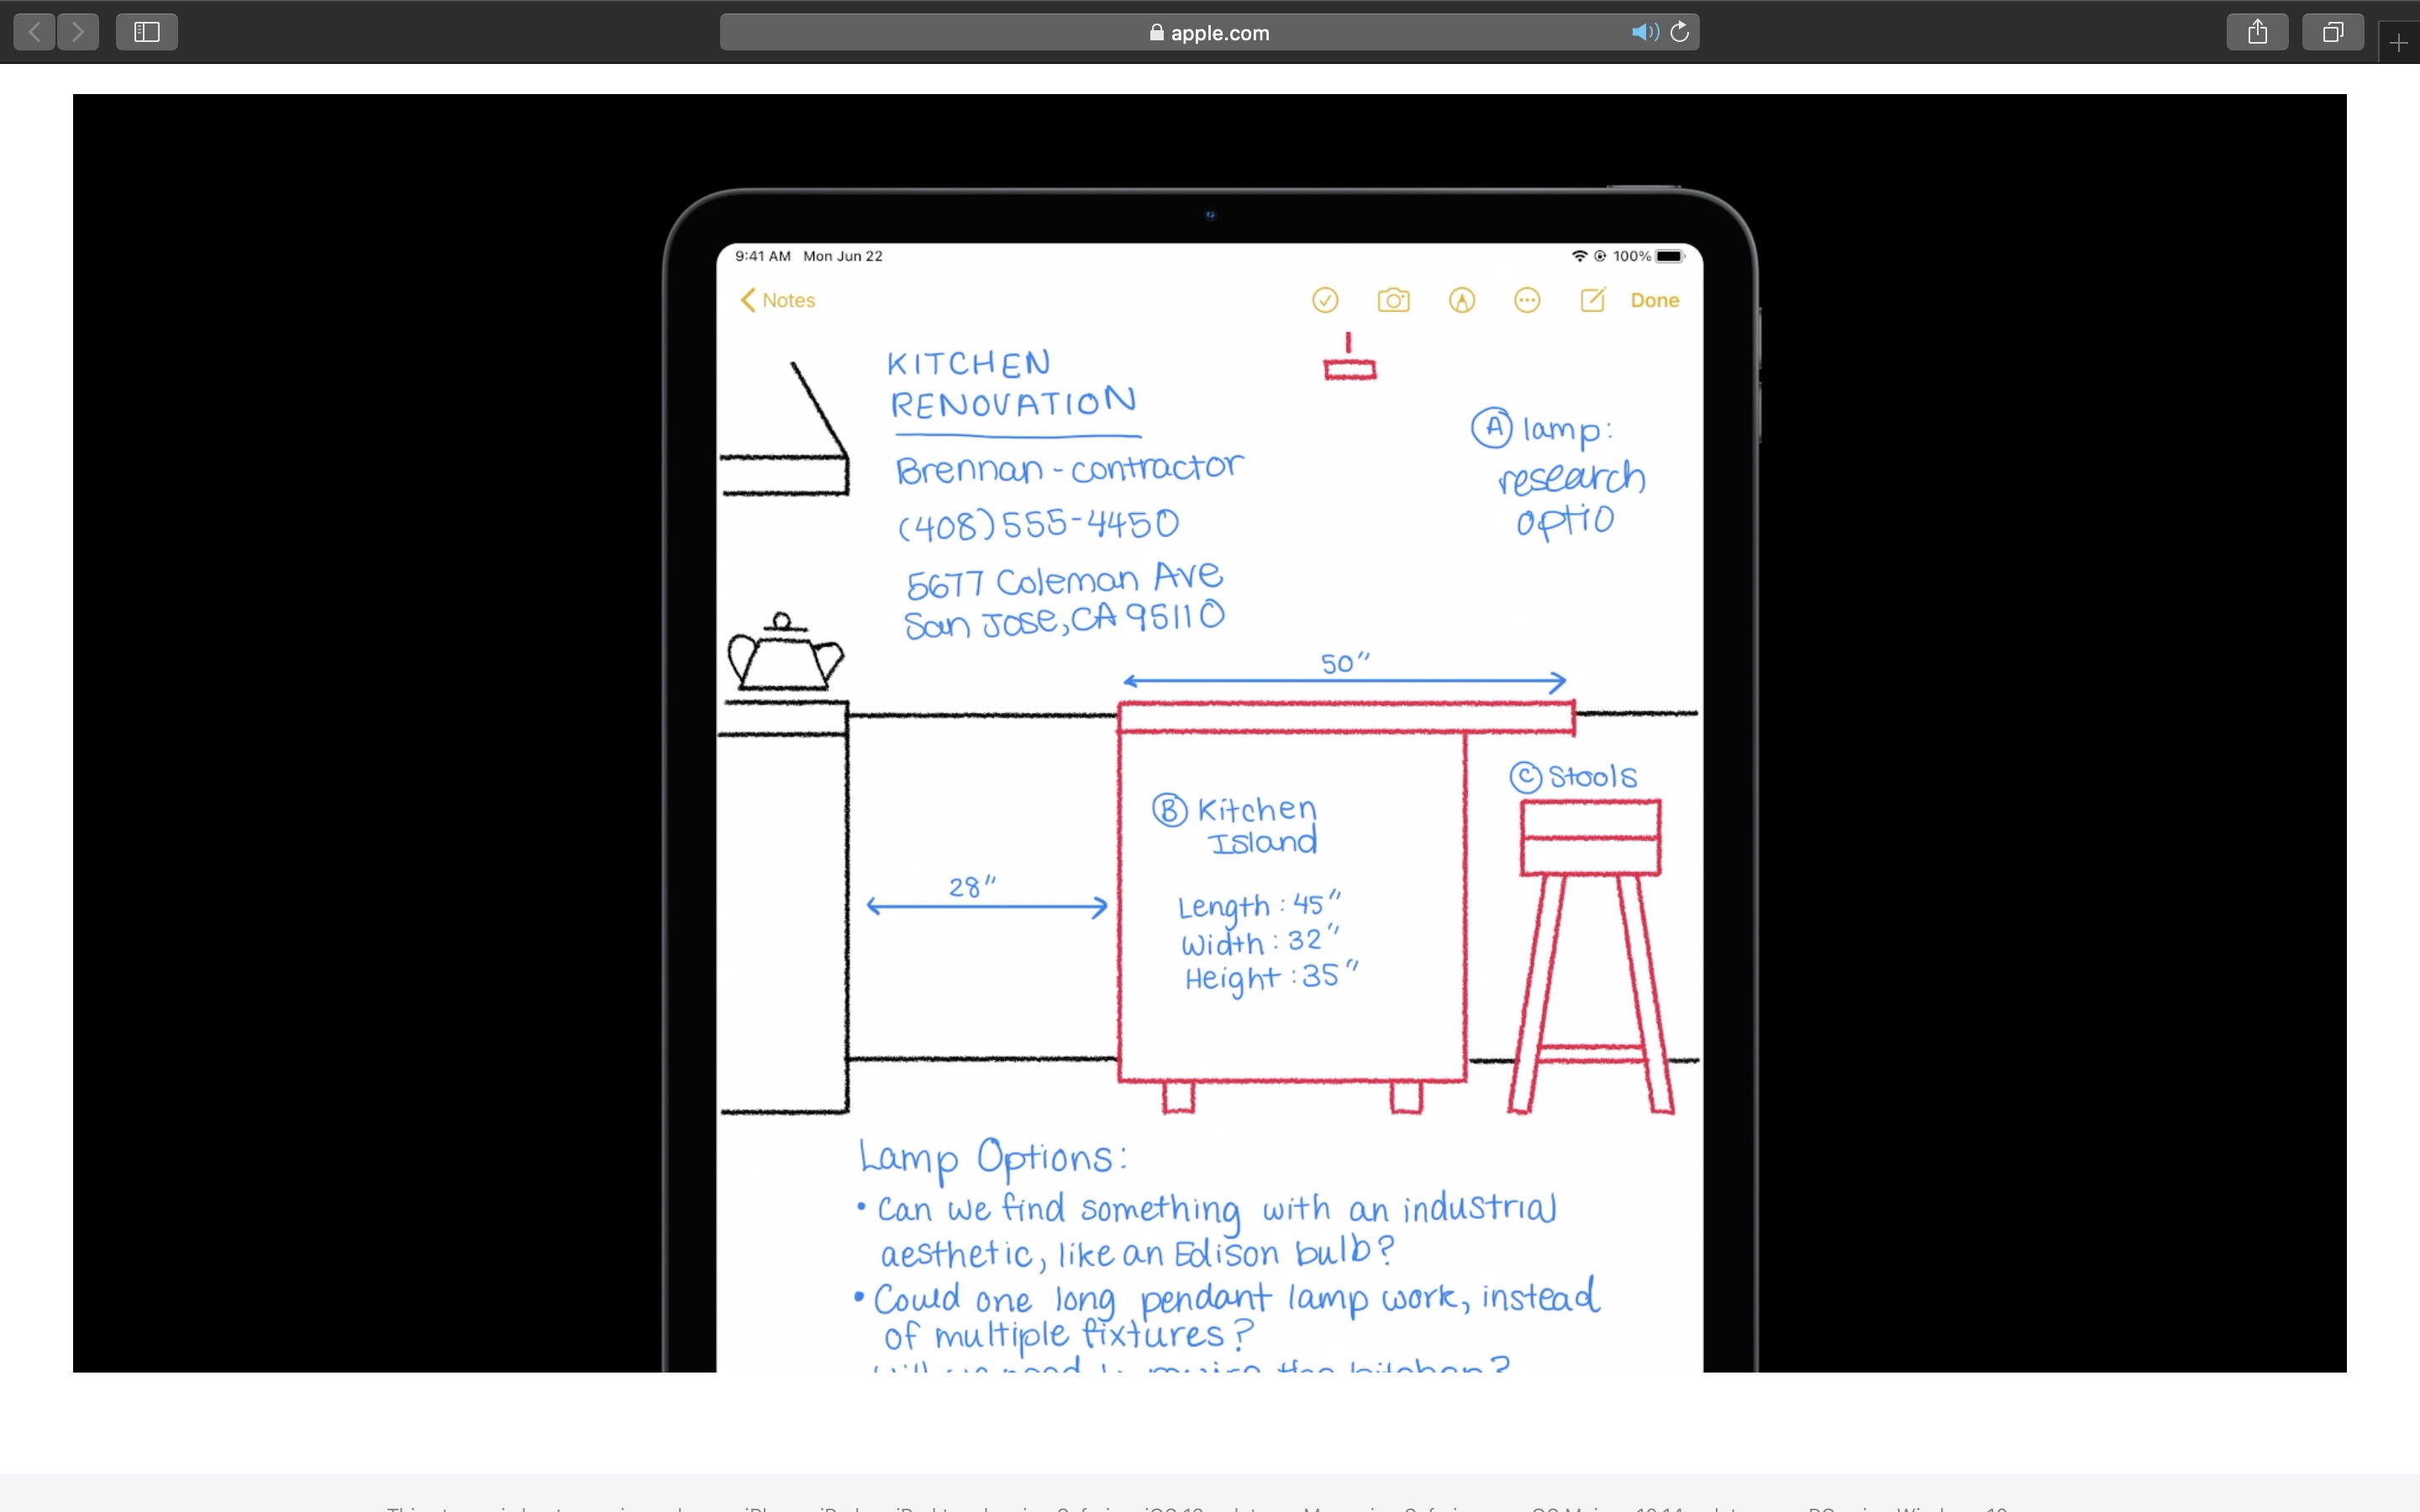 apple.com
9:41 AM Mon Jun 22
100%
Notes
Done
KITCHEN
RENOVATION
Brennan - contractor
(408) 555-4450
5677 Coleman Ave
San Jose, CA 95110
A lamp:
research
optio
50"
C Stools
B Kitchen
Island
28"
Length: 45"
Width: 32"
Height: 35"
Lamp Options:
• Can we find something with an industrial
aesthetic, like an Edison bulb?
• Could one long pendant lamp work, instead
of multiple fixtures?